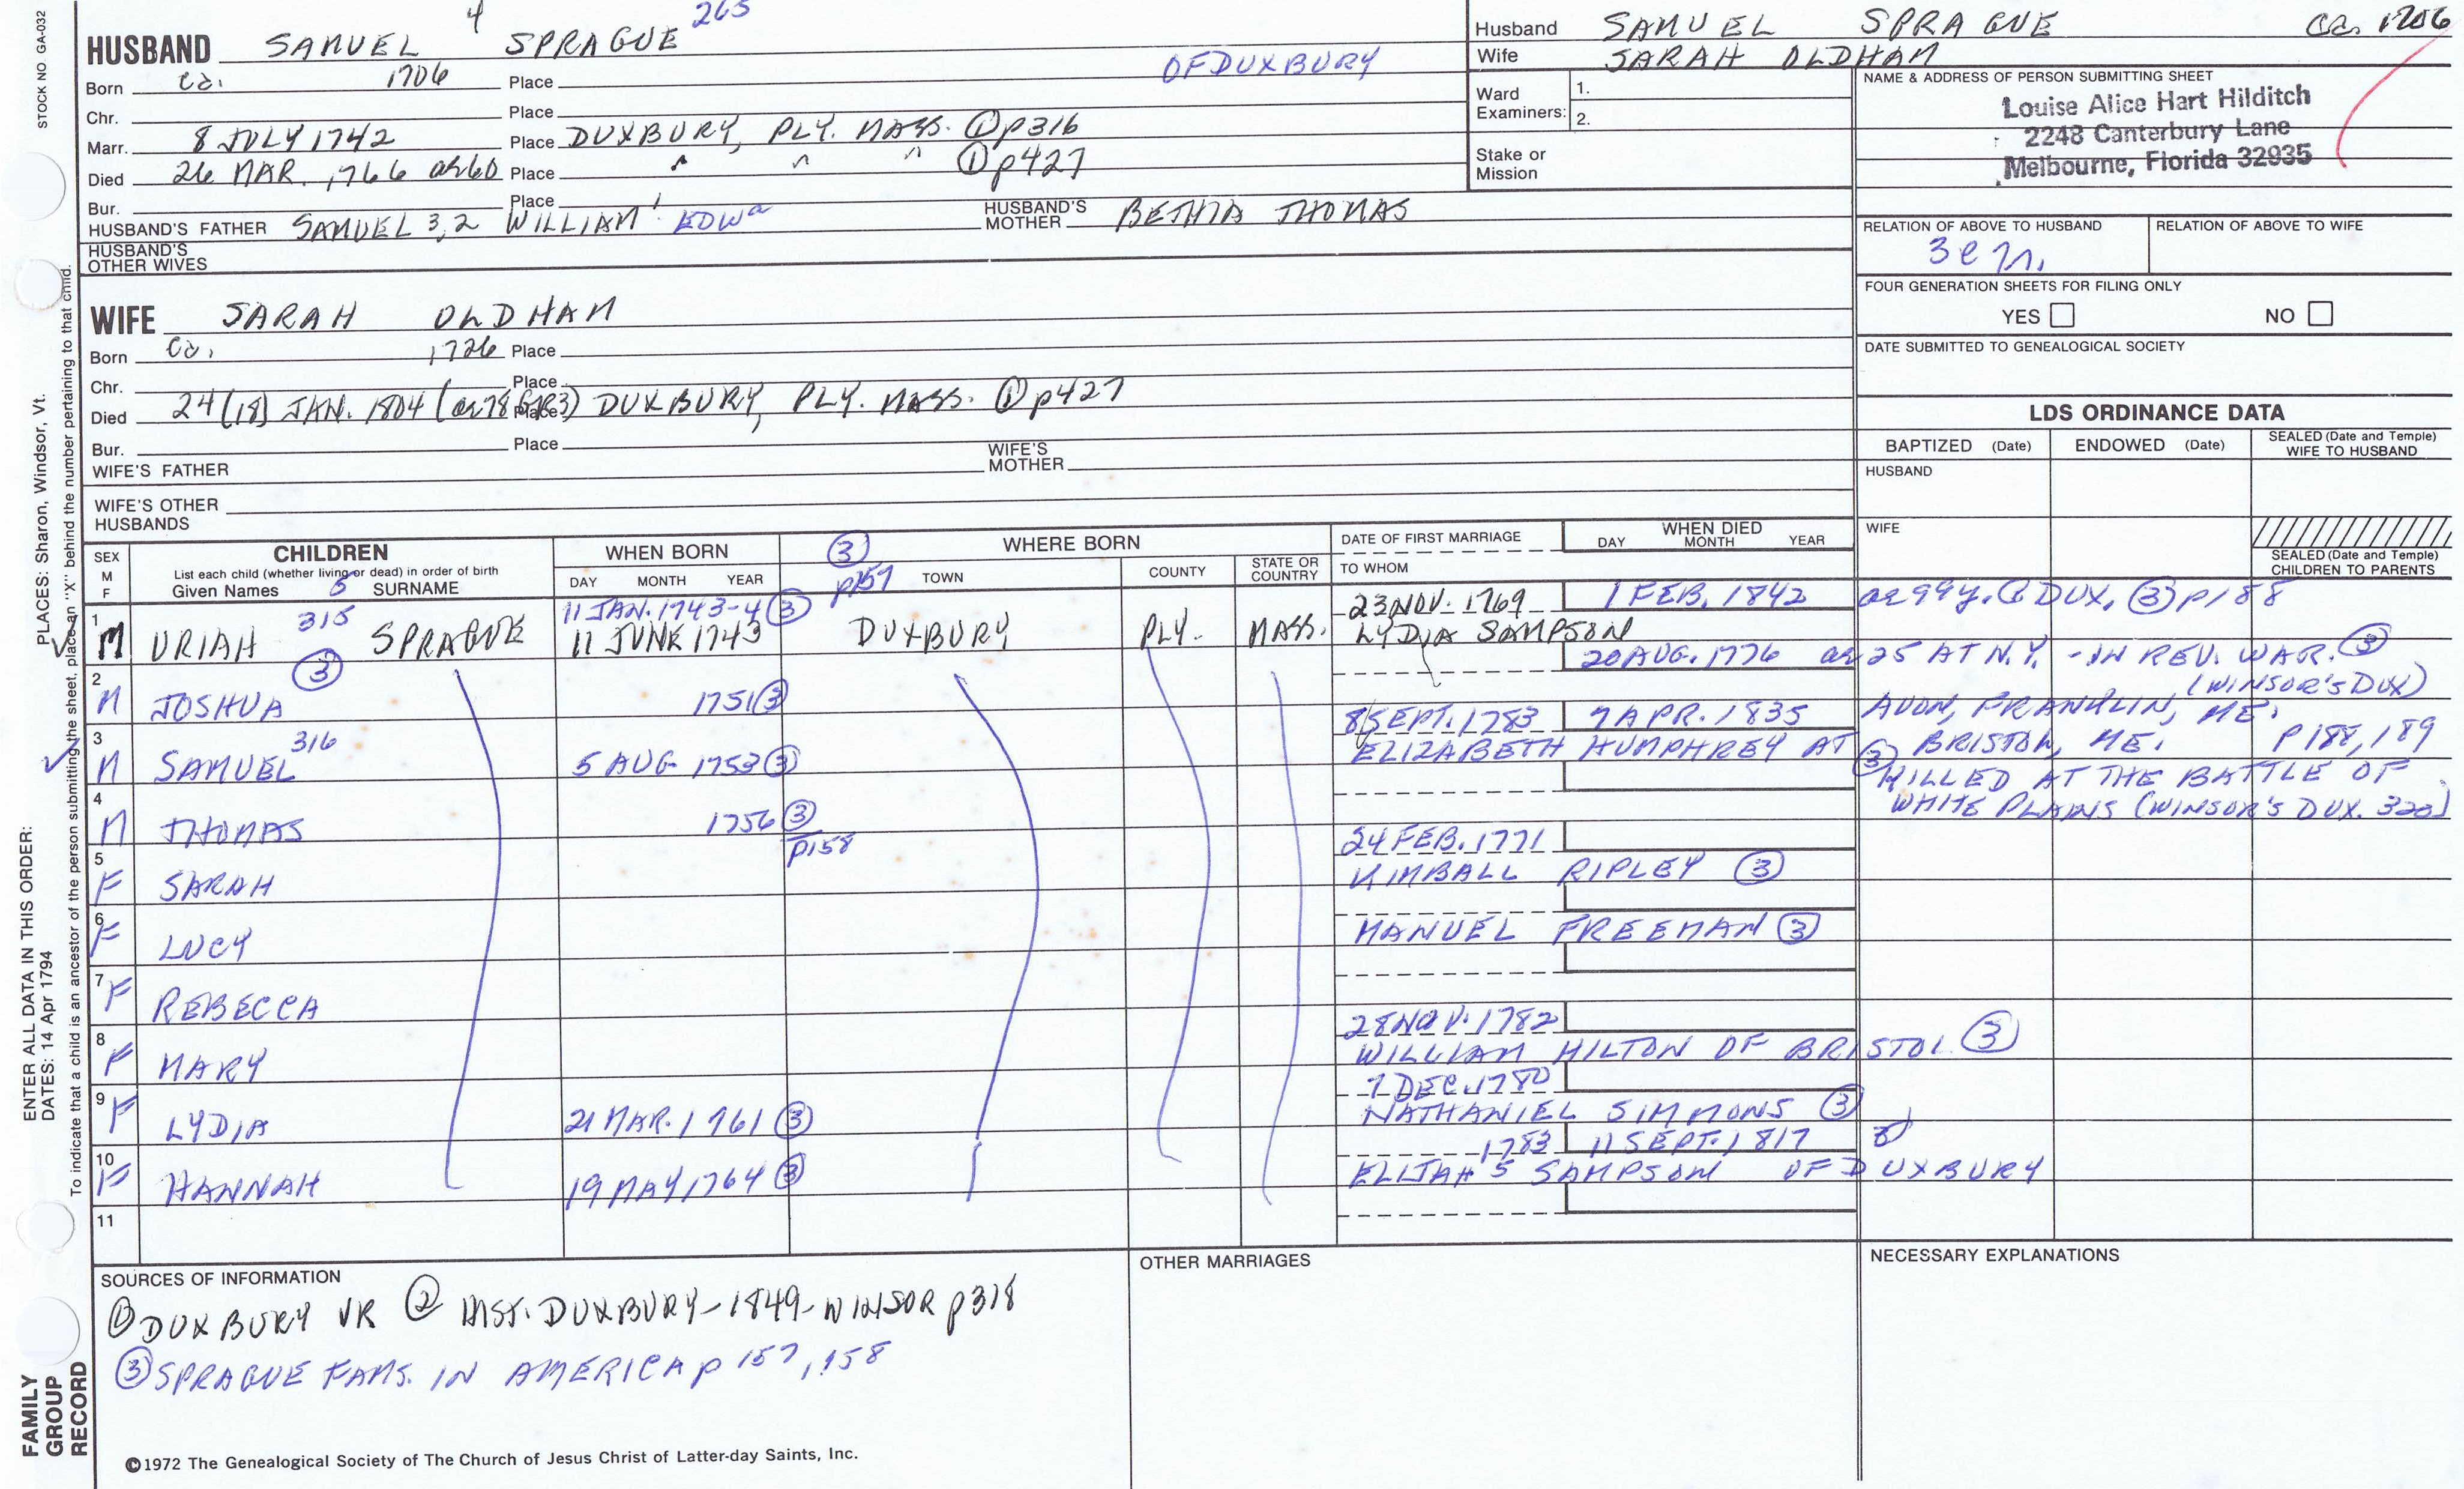 STOCK NO. GA-032
PLACES: Sharon, Windsor, Vt.
ENTER ALL DATA IN THIS ORDER:
DATES: 14 Apr 1794
To indicate that a child is an ancestor of the person submitting the sheet, place an "X" behind the number pertaining to that child.
FAMILY GROUP RECORD
HUSBAND SAMUEL 4 SPRAGUE 265
Born ca. 1706 Place OF DUXBURY
Chr. Place
Marr. 8 JULY 1742 Place DUXBURY, PLY. MASS. ① p316
Died 26 MAR. 1766 ae 60 Place " " " ① p427
Bur. Place
HUSBAND'S FATHER SAMUEL 3,2 WILLIAM 1 EDWa HUSBAND'S MOTHER BETHIA THOMAS
HUSBAND'S OTHER WIVES
WIFE SARAH OLDHAM
Born ca. 1726 Place
Chr. Place
Died 24 (18) JAN. 1804 (ae 78 GR3) Place DUXBURY, PLY. MASS. ① p427
Bur. Place
WIFE'S FATHER WIFE'S MOTHER
WIFE'S OTHER HUSBANDS
Husband SAMUEL SPRAGUE ca. 1706
Wife SARAH OLDHAM
Ward Examiners: 1. 2.
Stake or Mission
NAME & ADDRESS OF PERSON SUBMITTING SHEET
Louise Alice Hart Hilditch
2248 Canterbury Lane
Melbourne, Florida 32935
RELATION OF ABOVE TO HUSBAND RELATION OF ABOVE TO WIFE
FOUR GENERATION SHEETS FOR FILING ONLY
YES NO
DATE SUBMITTED TO GENEALOGICAL SOCIETY
LDS ORDINANCE DATA
BAPTIZED (Date) ENDOWED (Date) SEALED (Date and Temple) WIFE TO HUSBAND
HUSBAND
WIFE
SEALED (Date and Temple) CHILDREN TO PARENTS
SEX M F CHILDREN WHEN BORN ③ p157 WHERE BORN DATE OF FIRST MARRIAGE WHEN DIED
List each child (whether living or dead) in order of birth
Given Names 5 SURNAME DAY MONTH YEAR TOWN COUNTY STATE OR COUNTRY TO WHOM DAY MONTH YEAR
11 JAN. 1743-4 ③ 23 NOV. 1769 1 FEB. 1842 ae 99y. @ DUX. ③ p188
1 M URIAH 315 SPRAGUE 11 JUNE 1743 DUXBURY PLY. MASS. LYDIA SAMPSON
20 AUG. 1776 ae 25 AT N.Y. - IN REV. WAR. ③
2 M JOSHUA ③ 1751 ③ (WINSOR'S DUX)
8 SEPT. 1783 7 APR. 1835 AVON, FRANKLIN, ME.
3 M SAMUEL 316 5 AUG 1753 ③ ELIZABETH HUMPHREY AT BRISTOL, ME. ③ P188, 189
KILLED AT THE BATTLE OF
4 M THOMAS 1756 ③ p158 WHITE PLAINS (WINSOR'S DUX. 320)
24 FEB. 1771
5 F SARAH KIMBALL RIPLEY ③
6 F LUCY MANUEL FREEMAN ③
7 F REBECCA
28 NOV. 1782
8 F MARY WILLIAM HILTON OF BRISTOL ③
7 DEC. 1780
9 F LYDIA 21 MAR. 1761 ③ NATHANIEL SIMMONS ③
1783 11 SEPT. 1817
10 F HANNAH 19 MAY 1764 ③ ELIJAH 5 SAMPSON OF DUXBURY
11
SOURCES OF INFORMATION
① DUXBURY VR ② HIST. DUXBURY-1849-WINSOR p318
③ SPRAGUE FAMS. IN AMERICA p 157, 158
OTHER MARRIAGES
NECESSARY EXPLANATIONS
©1972 The Genealogical Society of The Church of Jesus Christ of Latter-day Saints, Inc.